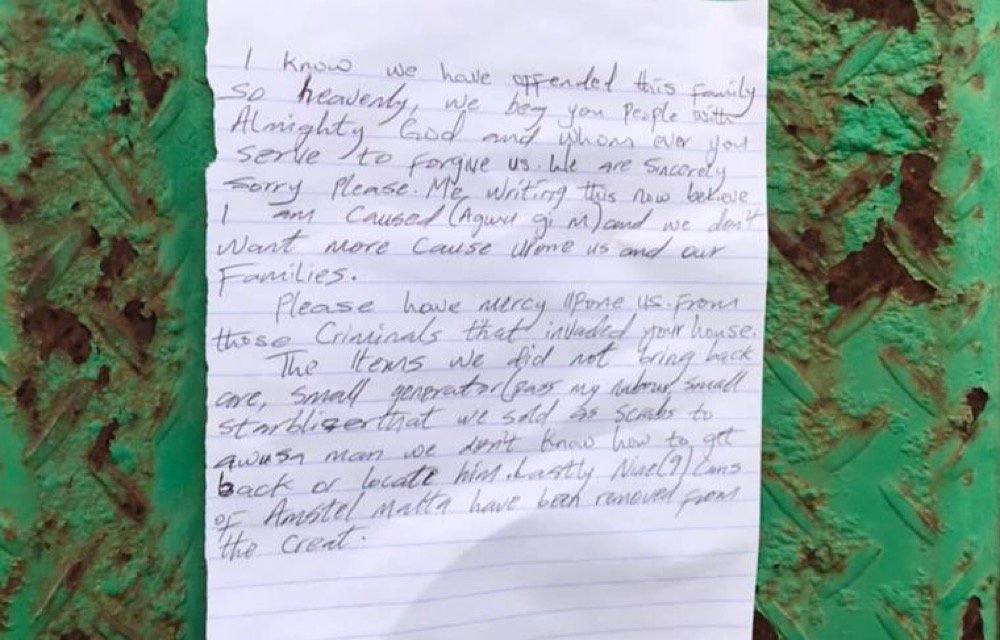 I know we have offended this family
so heavenly, we beg you people with
Almighty God and whom ever you
serve to forgive us. We are sincerely
sorry please. Me writing this now believe
I am caused (Agwu gi m) and we don't
want more cause upone us and our
Families.
Please have mercy upone us. From
those Criminals that invaded your house.
The Items we did not bring back
are, small generator (pass my nubour small
starblizer that we sold as scrabs to
awusa man we don't know how to get
back or locate him. Lastly Nine (9) Cans
of Amstel Malta have been removed from
the Creat.